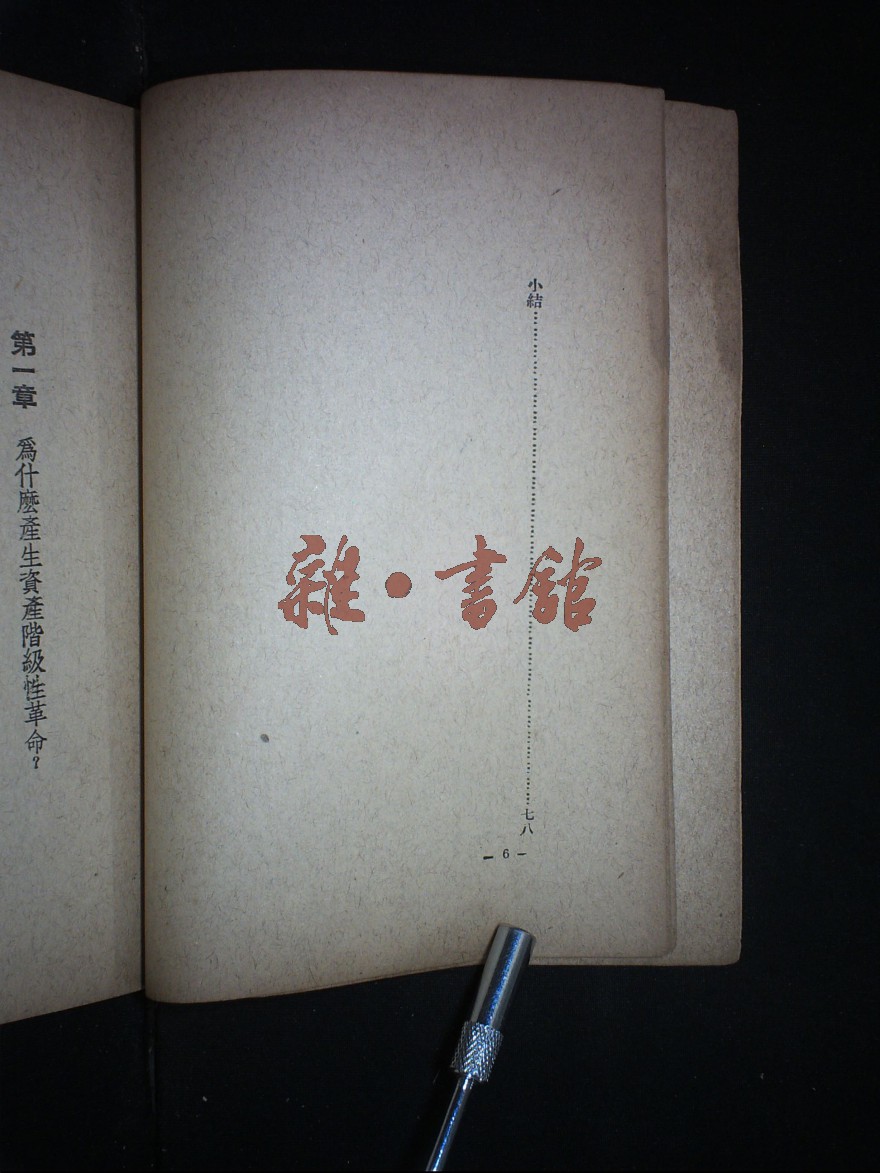 小結……………………………七八
— 6 —
第一章 爲什麽產生資產階級性革命？
雜·書館